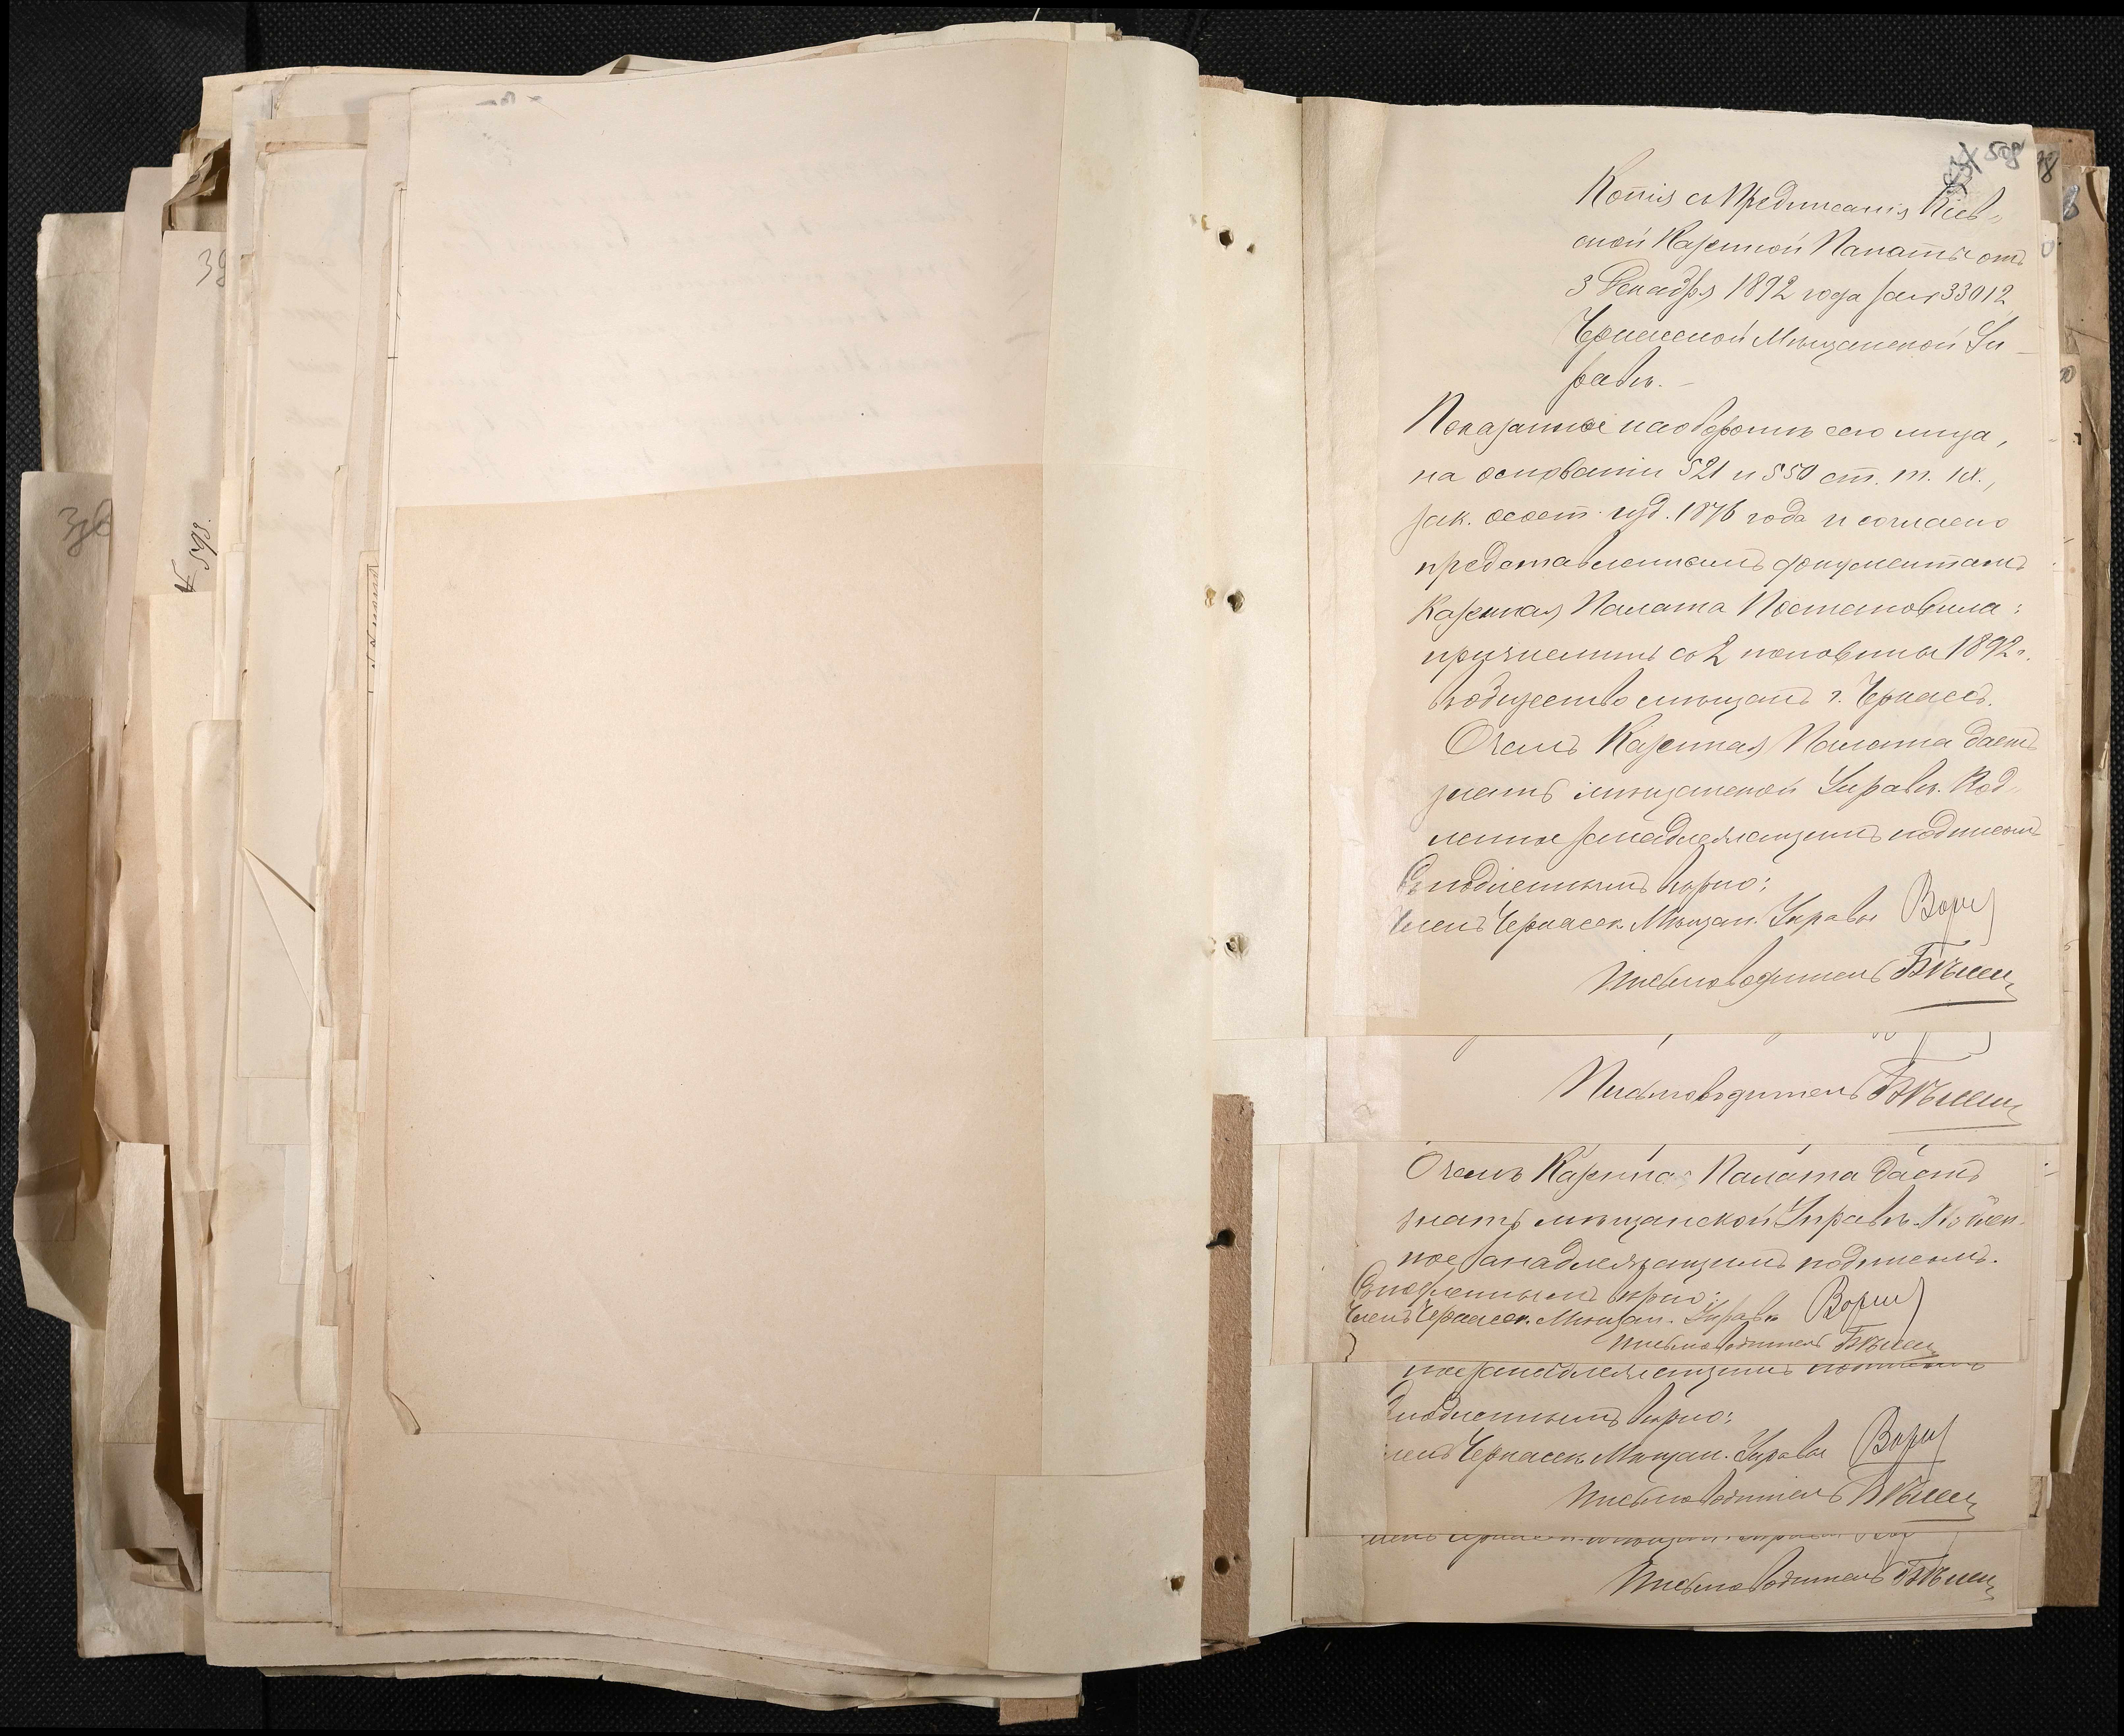 398
№ 598.
508
Копія съ Предписанія Кіев-
ской Казенной Палаты отъ
3 Декабря 1892 года за № 33012
Черкасской Мѣщанской Уп-
равѣ. —
Показанное на оборотѣ сего лица,
на основаніи 521 и 550 ст. т. IX.,
зак. сост. изд. 1876 года и согласно
представленнымъ документамъ
Казенная Палата Постановила:
причислить со 2 половины 1892 г.
въ общество мѣщанъ г. Черкассъ.
О чемъ Казенная Палата даетъ
знать мѣщанской Управѣ. Под-
линное за надлежащимъ подписомъ
Съ подлиннымъ вѣрно:
Членъ Черкасск. Мѣщан. Управы
Письмоводитель
Письмоводитель
О чемъ Казенная Палата даетъ
знать мѣщанской Управѣ. Подлин-
ное за надлежащимъ подписомъ.
Съ подлиннымъ вѣрно:
Членъ Черкасск. Мѣщан. Управы
Письмоводитель
ное за надлежащимъ подписомъ
подлиннымъ вѣрно:
ленъ Черкасск. Мѣщан. Управы
Письмоводитель
Письмоводитель